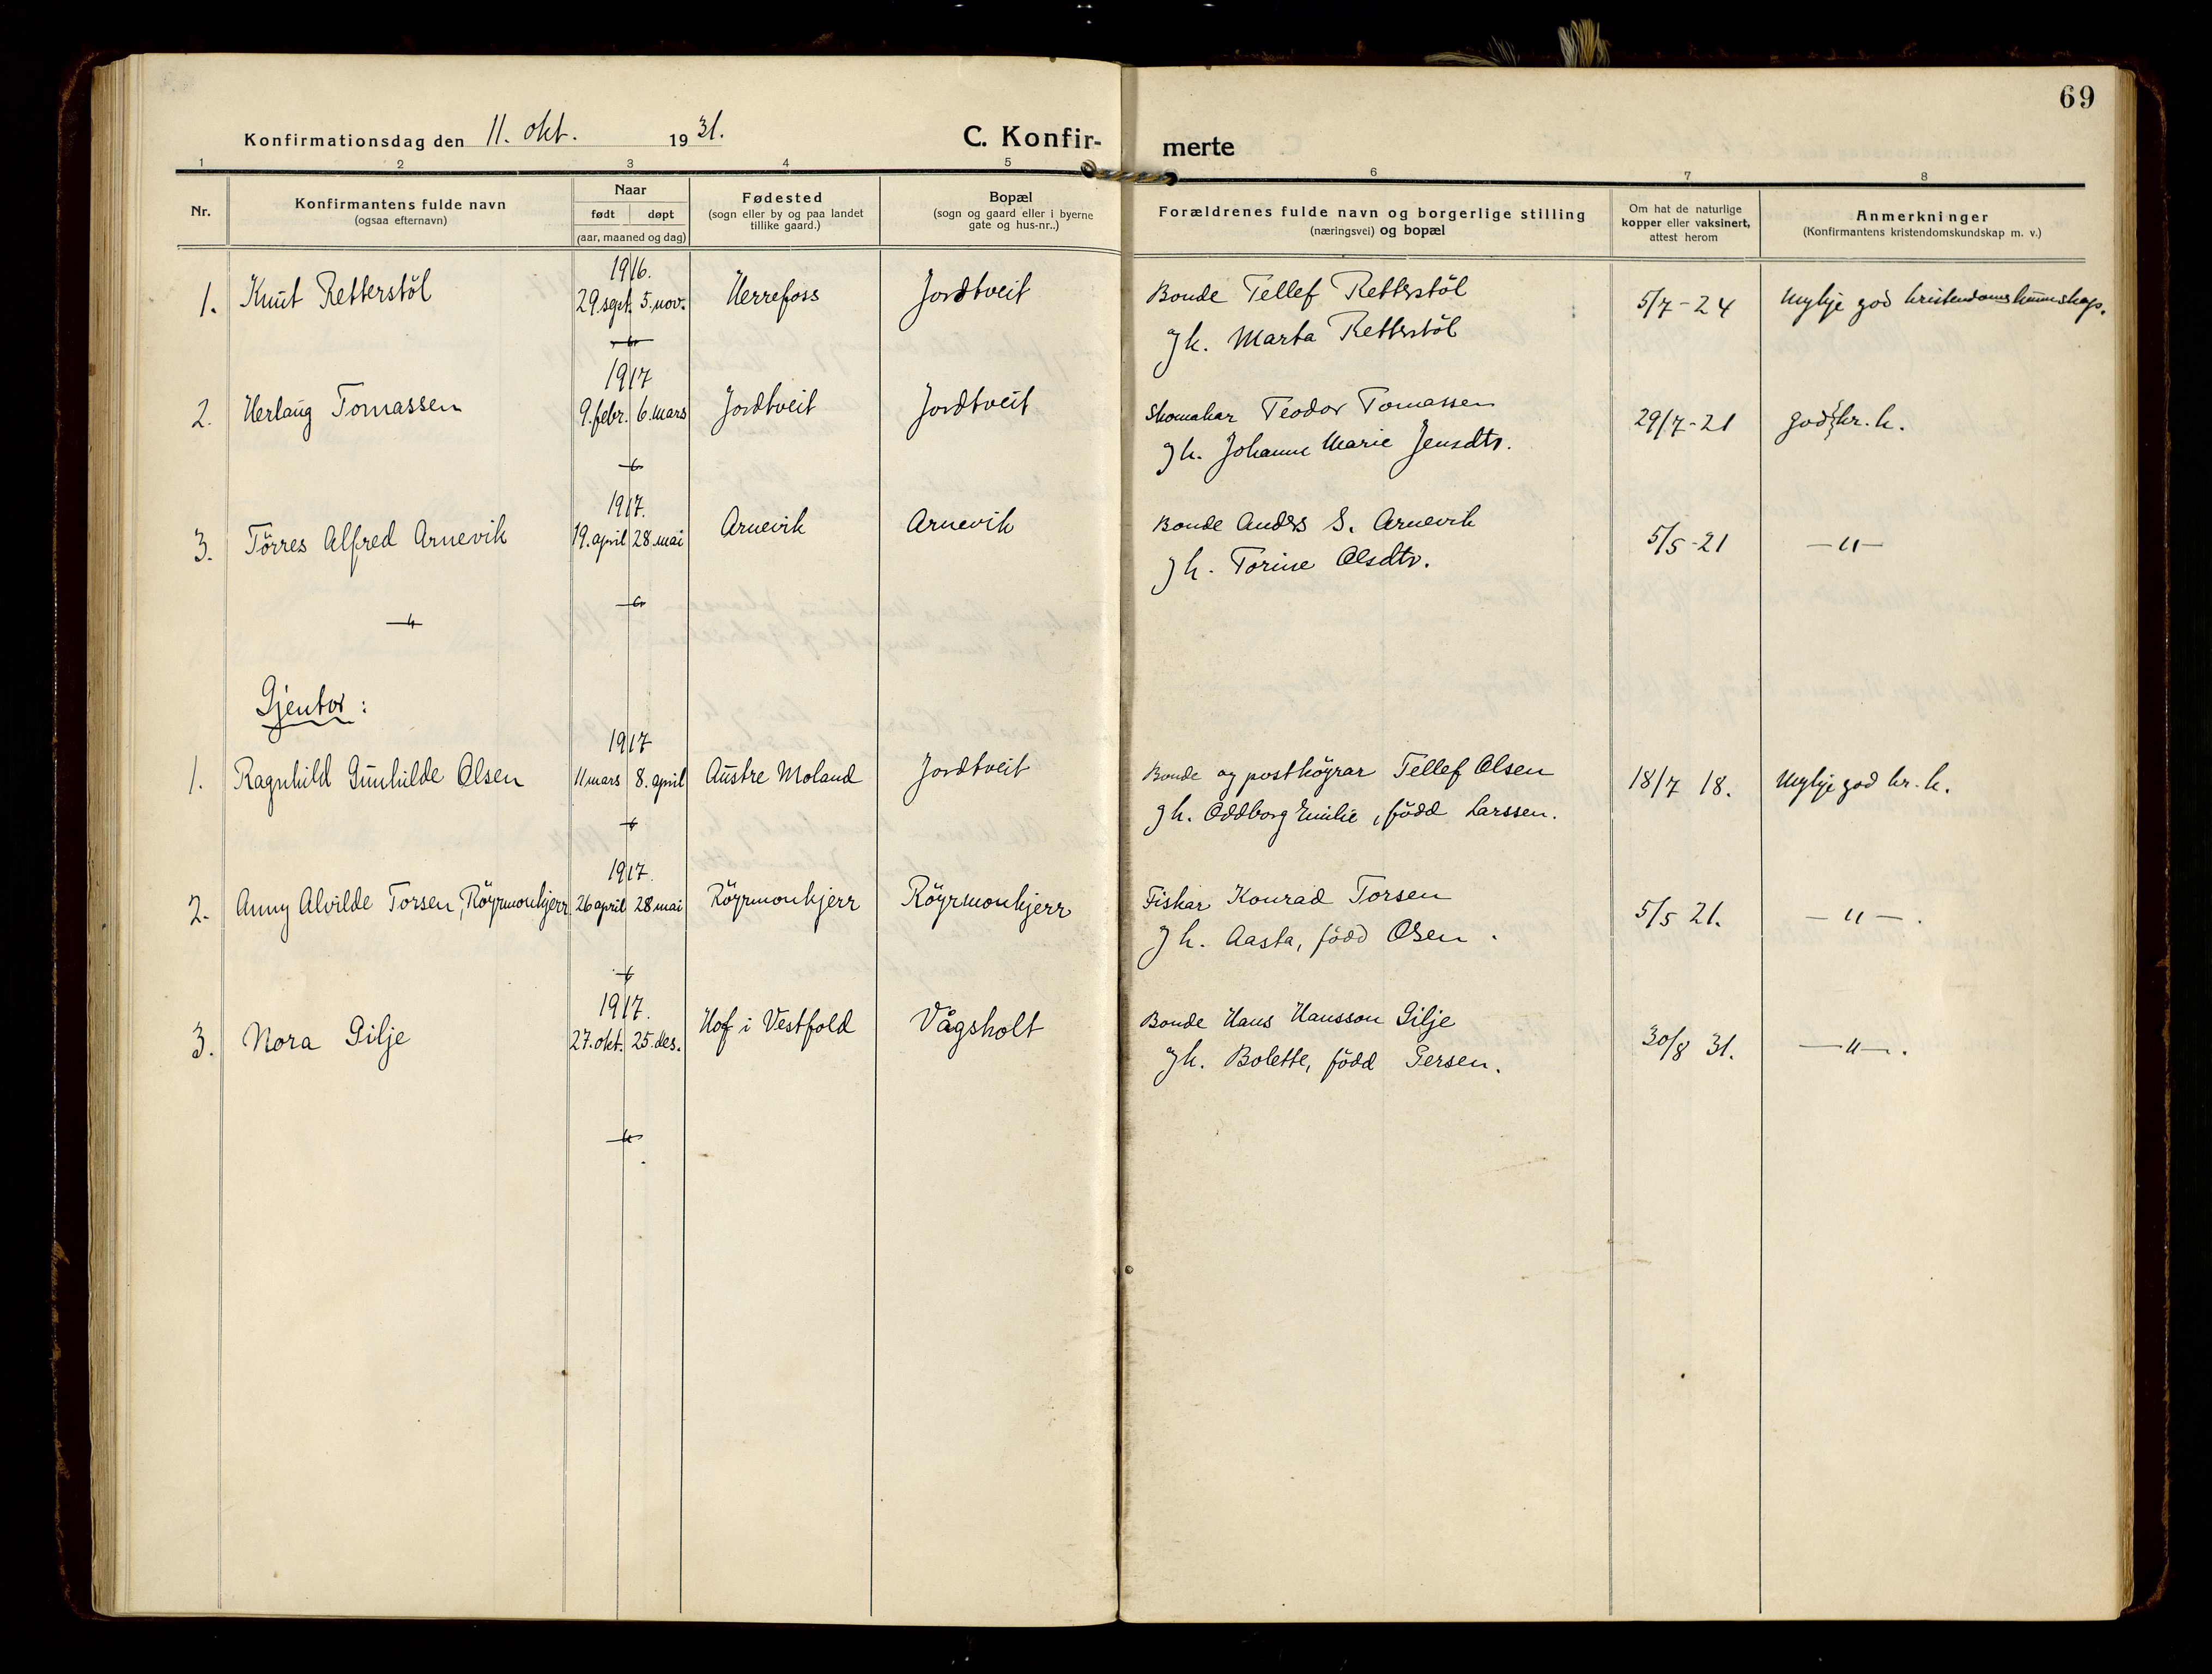 69
Konfirmationsdag den 11. okt. 1931.
C. Konfir-
merte
1 2 3 4 5 6 7 8
Nr.
Konfirmantens fulde navn
(ogsaa efternavn)
Naar
født døpt
(aar, maaned og dag)
Fødested
(sogn eller by og paa landet
tillike gaard.)
Bopæl
(sogn og gaard eller i byerne
gate og hus-nr..)
Forældrenes fulde navn og borgerlige stilling
(næringsvei) og bopæl
Om hat de naturlige
kopper eller vaksinert,
attest herom
Anmerkninger
(Konfirmantens kristendomskundskap m. v.)
1916.
1. Knut Retterstöl 29. sept. 5. nov. Herrefoss Jordtveit Bonde Tellef Retterstöl 5/7-24 Mykje god kristendomskunnskap.
g k. Marta Retterstöl
1917
2. Herlaug Tomassen 9. febr. 6. mars Jordtveit Jordtveit Skomakar Teodor Tomassen 29/7-21 god kr. k.
g k. Johanne Marie Jensdtr.
1917.
3. Törres Alfred Arnevik 19. april 28. mai Arnevik Arnevik Bonde Anders S. Arnevik 5/5-21 —"—
g k. Torine Olsdtr.
Gjentor:
1917
1. Ragnhild Gunhilde Olsen 11 mars 8. april Austre Moland Jordtveit Bonde og postköyrar Tellef Olsen 18/7 18. Mykje god kr. k.
g k. Oddborg Emilie, född Larssen.
1917.
2. Anny Alvilde Torsen, Röyrmonkjerr 26 april 28 mai Röyrmonkjerr Röyrmonkjerr Fiskar Konrad Torsen 5/5 21. —"—.
g k. Aasta, född Olsen.
1917.
3. Nora Gilje 27. okt. 25. des. Hof i Vestfold Vågsholt Bonde Hans Hansson Gilje 30/8 31. —"—.
g k. Bolette, född Persen.